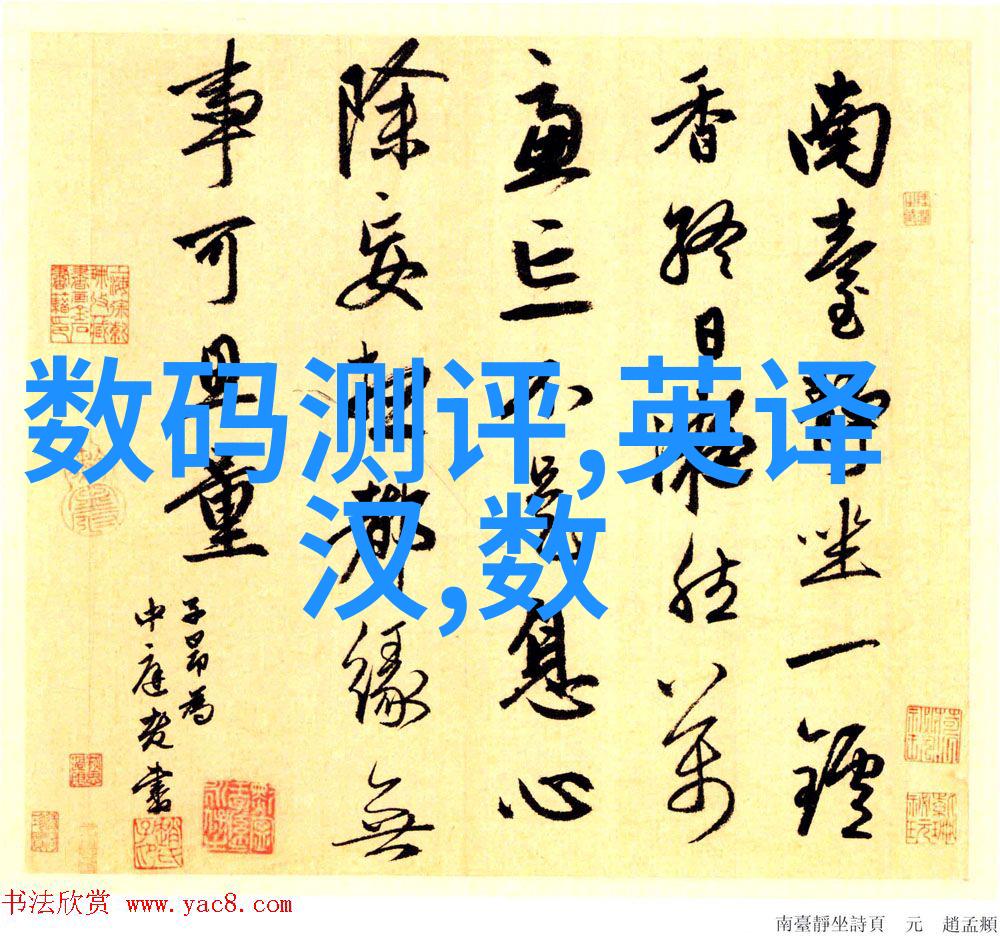 南臺靜坐一鑪
香終日凝然萬
慮亡不是息心
除妄想都緣無
事可思量
子昂為
中庭老書
数码测评,英译
汉,数
书法欣赏 www.yac8.com
南臺靜坐詩頁 元 趙孟頫